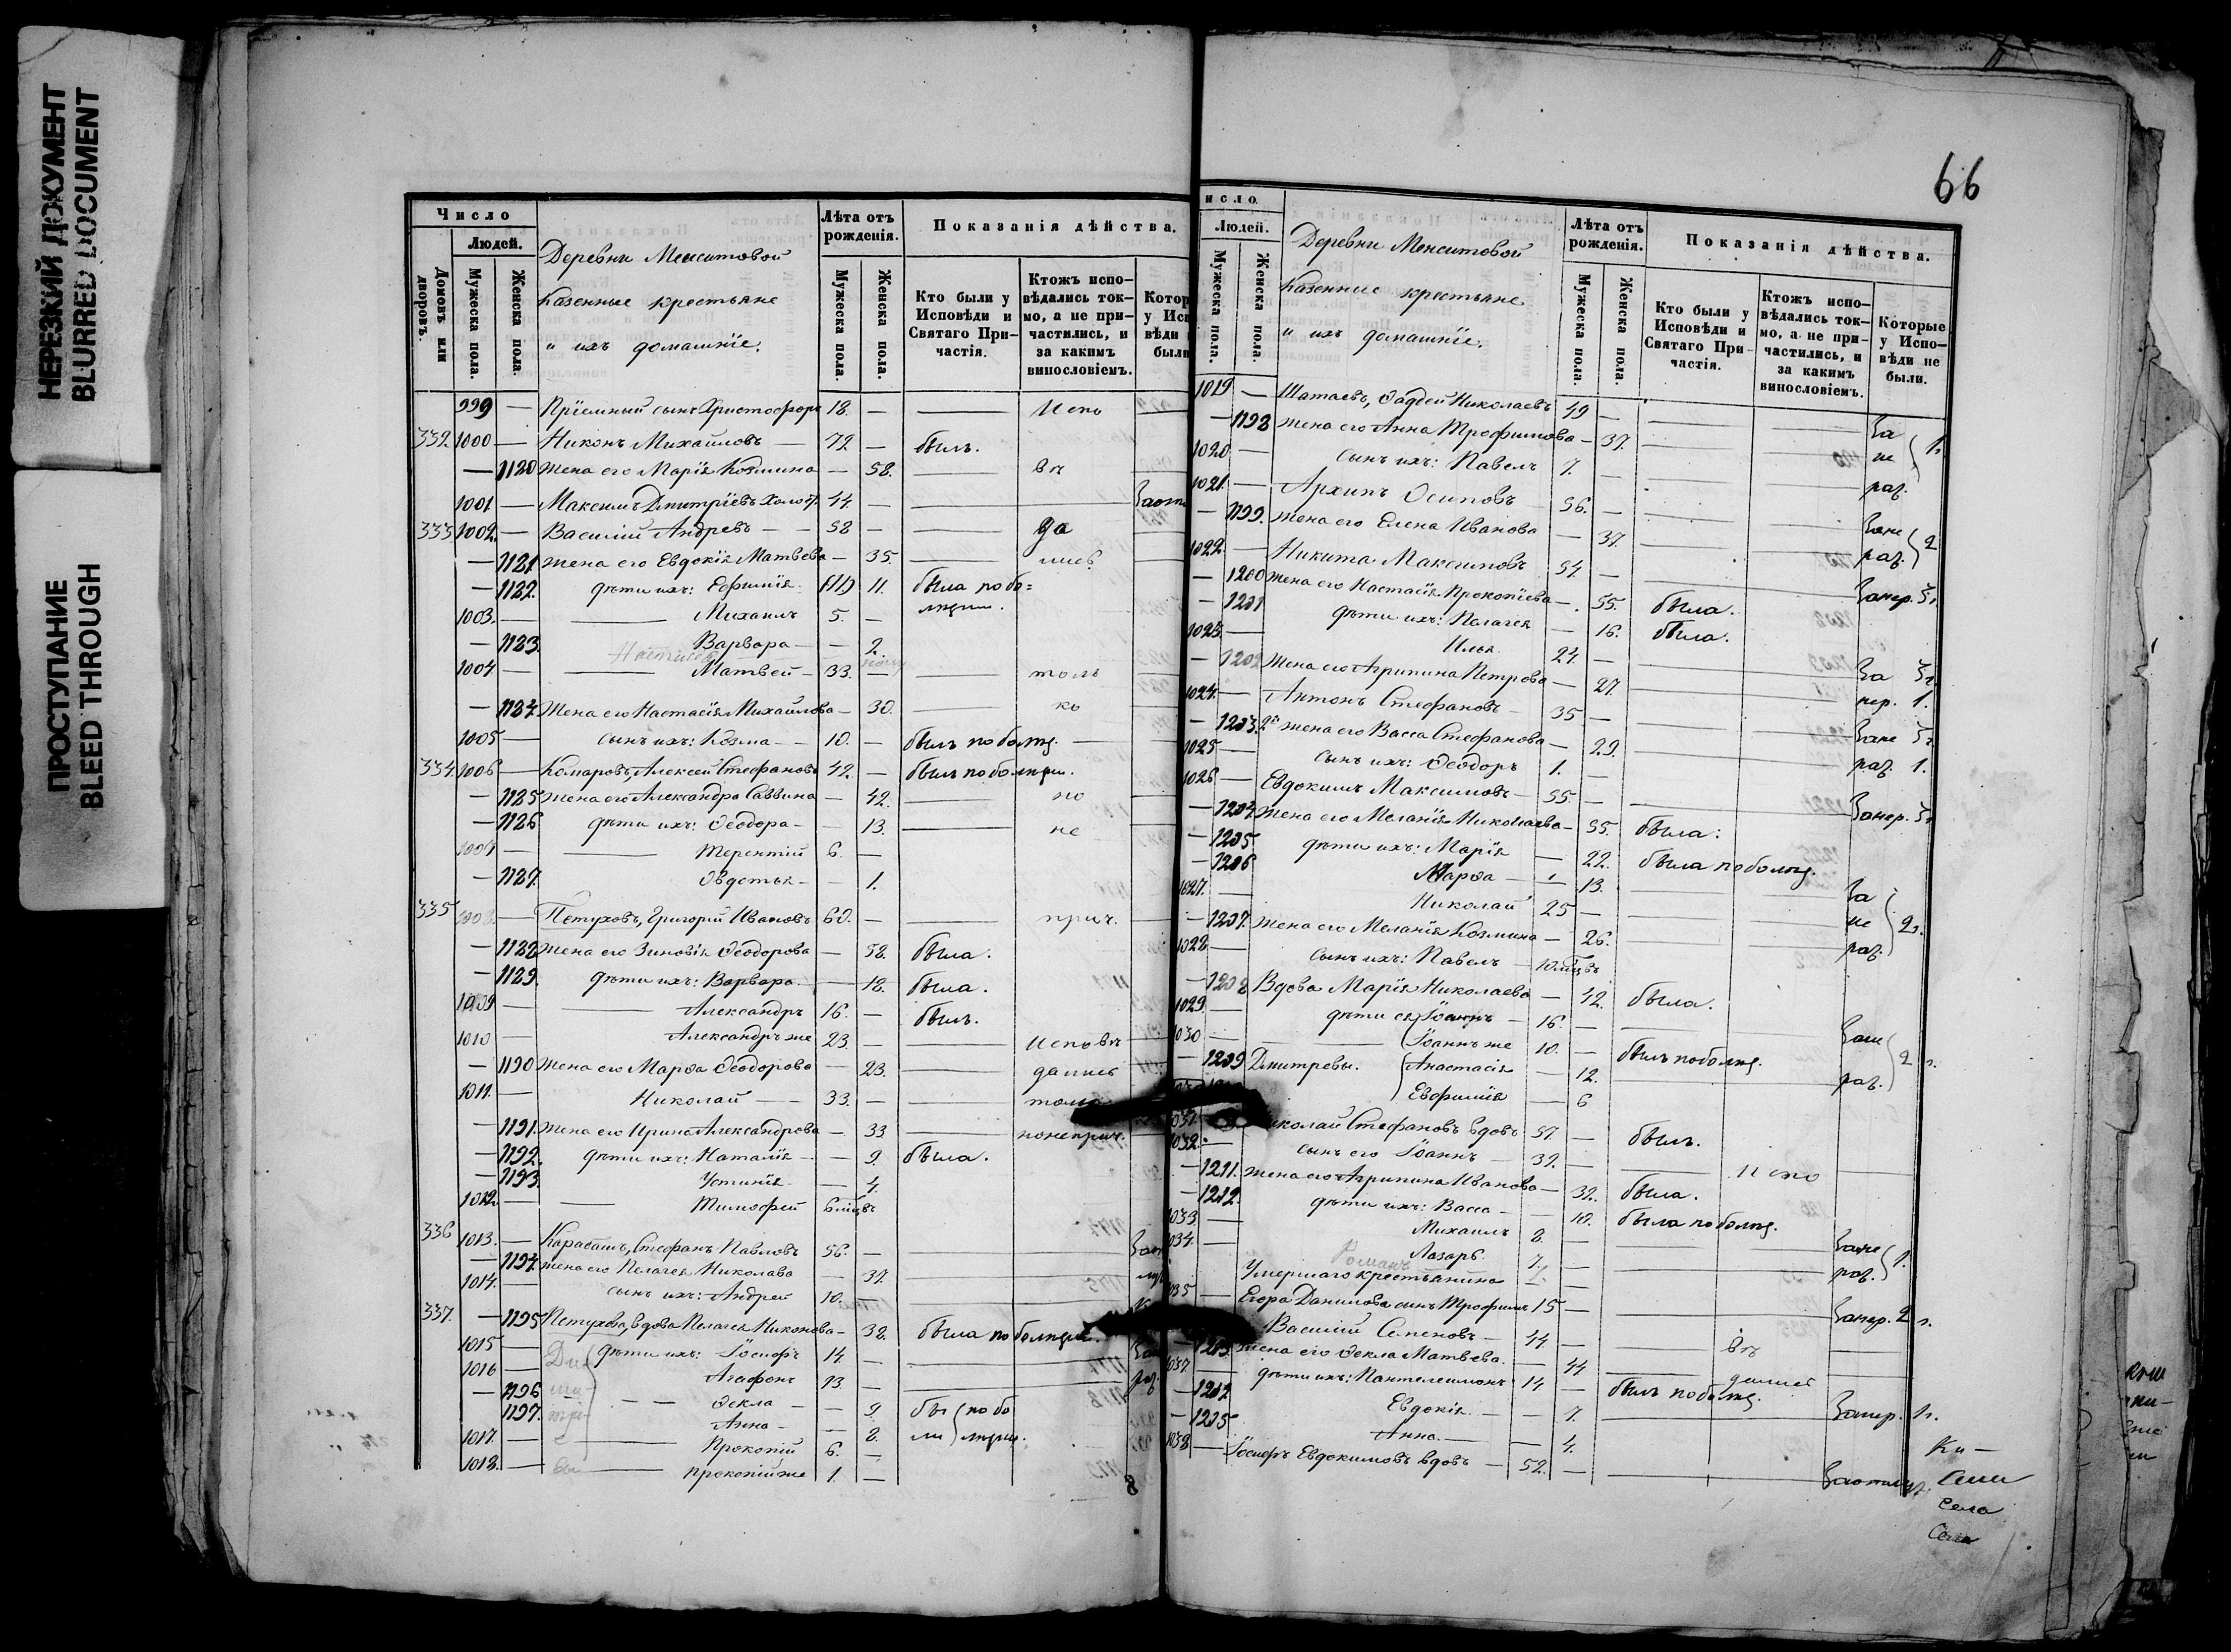 НЕРЕЗКИЙ ДОКУМЕНТ
BLURRED DOCUMENT
ПРОСТУПАНИЕ
BLEED THROUGH
Число
Людей.
Домовъ или дворовъ.
Мужеска пола.
Женска пола.
Деревни Менситовой
Казенные крестьяне
и ихъ домашніе.
Лѣта отъ рожденія.
Мужеска пола.
Женска пола.
Показанія дѣйства.
Кто были у Исповѣди и Святаго Причастія.
Ктожъ исповѣдались токмо, а не причастились, и за какимъ винословіемъ.
999 — Пріемный сынъ Христофоръ 18. — Испо
332 1000 — Никонъ Михайловъ — 72. — былъ.
— 1180 жена его Марія Козмина — 58. вѣ
1001 — Максимъ Дмитріевъ 44. —
333 1002. — Василій Андревъ — 58 — да
— 1181 жена его Евдокія Матвѣева — 35. лись
— 1182. дѣти ихъ: Ефимія 11. была по болѣзни.
1003. — Михаилъ 5. —
— 1183. Варвара — 2.
1004. — Матвей — 33. — толь
— 1184. Жена его Настасія Михайлова — 30. ко
1005 — сынъ ихъ: Козма — 10. — былъ по болѣз.
334 1006 — Комаровъ, Алексей Стефановъ 42. — былъ по болѣзни.
— 1185 жена его Александра Саввина — 42. но
— 1186 дѣти ихъ: Ѳеодора — 13. не
1007 — Терентій 6. —
— 1187. Авдотья — 1.
335 1008. — Петуховъ, Григорій Ивановъ 60. — прич.
— 1188 жена его Зиновія Ѳеодорова — 58. была.
— 1189. дѣти ихъ: Варвара — 18. была.
1009 — Александръ 16. — былъ.
1010 — Александръ же 23. — Исповѣ
— 1190 Жена его Марѳа Ѳеодорова — 23. дались
1011. — Николай — 33. — только
— 1191. жена его Ирина Александрова — 33 но не прич.
— 1192. дѣти ихъ: Наталія — 9. была.
— 1193. Устинія — 4.
1012. — Тимофей 6 мцвъ
336 1013. — Карабашъ, Стефанъ Павловъ 56. —
— 1194. жена его Пелагея Николава — 37.
1014. — сынъ ихъ: Андрей 10. —
337. — 1195 Петухова, вдова Пелагея Никонова — 38. была по болѣзни.
1015 — дѣти ихъ: Іосифъ 14. —
1016 — Агафонъ 13. —
— 1196 Ѳекла — 9. были по болѣзни.
— 1197. Анна — 8.
1017. — Прокопій 6. —
1018. — Прокопій же 1. —
66
Людей.
Мужеска пола.
Женска пола.
Деревни Менситовой
Казенные крестьяне
и ихъ домашніе.
Лѣта отъ рожденія.
Мужеска пола.
Женска пола.
Показанія дѣйства.
Кто были у Исповѣди и Святаго Причастія.
Ктожъ исповѣдались токмо, а не причастились, и за какимъ винословіемъ.
Которые у Исповѣди не были.
1019 — Шатаевъ, Фаддей Николаевъ 49 —
— 1198 жена его Анна Трофимова — 37. За
1020 — сынъ ихъ: Павелъ 7. — не
1021. — Архипъ Осиповъ 56. — рад. 1.
— 1199. жена его Елена Иванова — 37. Зане
1022. — Никита Максимовъ 54. — рад. 2
— 1200 жена его Настасія Прокопіева — 55. была. Занер.
— 1201 дѣти ихъ: Пелагея — 16. была.
1023. — Илья 24. —
— 1202 Жена его Агрипина Петрова — 27. За
1024. — Антонъ Стефановъ 35 — нер. 1.
— 1203. 2я жена его Васса Стефанова — 29. Зане
1025 — Сынъ ихъ: Ѳеодоръ 1. — рад. 1.
1026 — Евдокимъ Максимовъ 55. —
— 1204. Жена его Меланія Николаева — 55. была: Занер.
— 1205 дѣти ихъ: Марія — 22. была по болѣз.
— 1206 Марѳа — 13.
1027. — Николай 25 — За
— 1207. жена его Меланія Козмина — 26. не
1028 — Сынъ ихъ: Павелъ — 10 мцвъ рад. 2.
— 1208 Вдова Марія Николаева — 42. была.
1029. — дѣти ея: Іоаннъ 16. —
1030 — Іоаннъ же 10. — былъ по болѣз. Зане
— 1209 Дмитревы. Анастасія — 12. рад. 2
Евфимія — 6
1031. Николай Стефановъ вдовъ 57. — былъ.
1032. — сынъ его Іоаннъ 39. — Испо
— 1211. жена его Агрипина Иванова — 32. была.
— 1212. дѣти ихъ: Васса — 10. была по болѣз.
1033 — Михаилъ 8. —
1034. — Лазарь 7. — Зане рад. 1.
Романъ
Умершаго крестьянина
1035 — Егора Данилова сынъ Трофимъ 15 — Занер. 2
Василій Семеновъ — 44. — вѣ
— 1213. жена его Ѳекла Матвѣева — 44 дались
1037. дѣти ихъ: Пантелеимонъ 14 — былъ по болѣз.
Евдокія — 7. Занер. 1.
Анна — 4.
1038 — Іосифъ Евдокимовъ вдовъ — 52. —